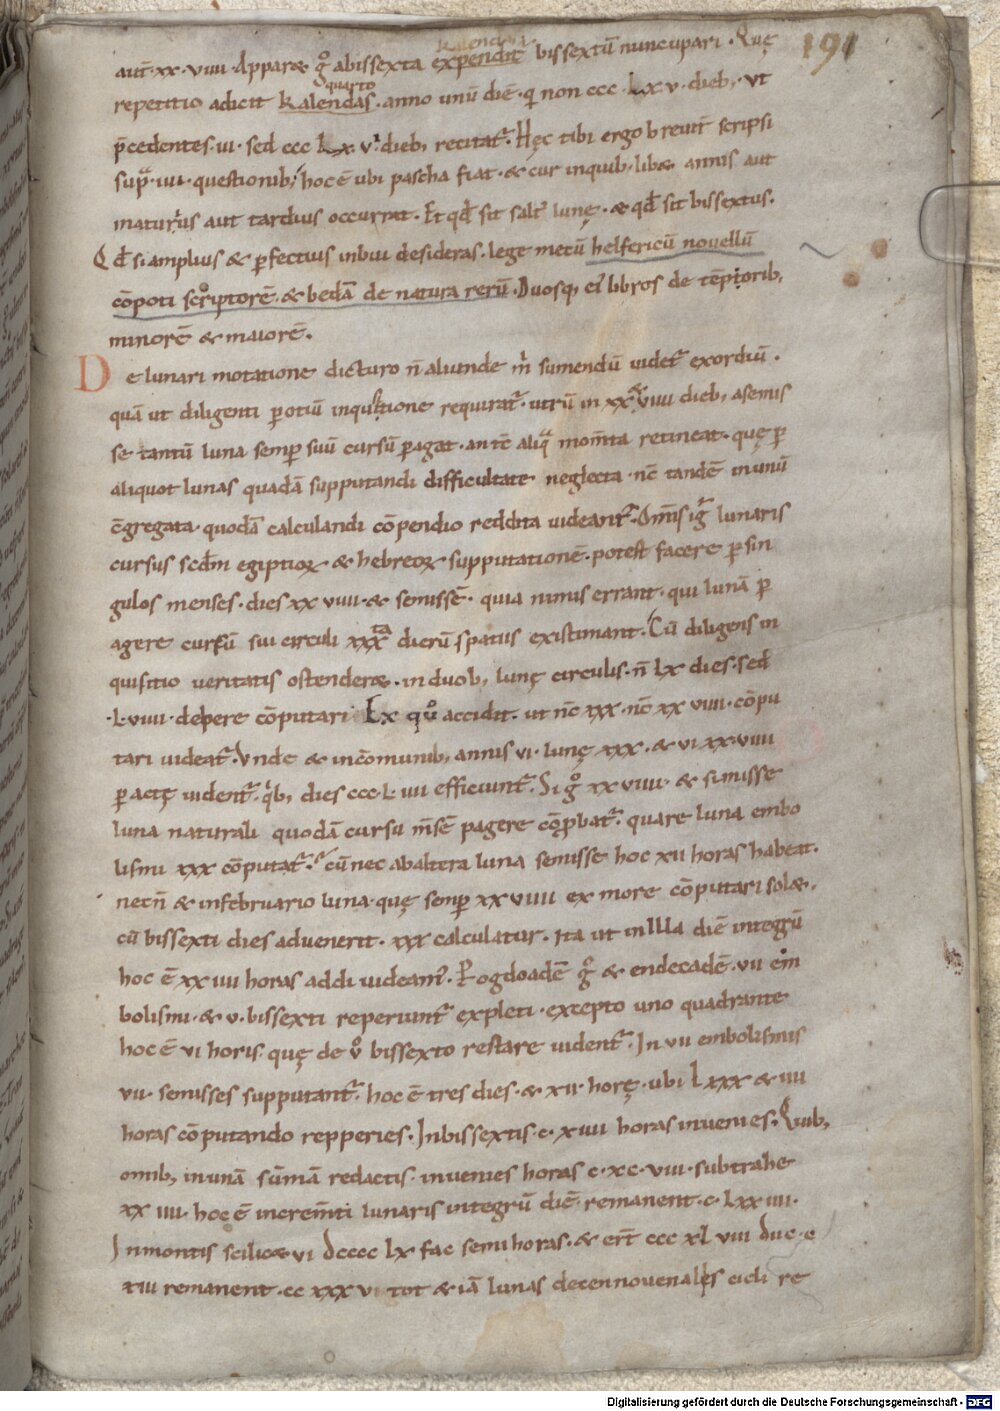 191
kalendaru
aut̄·xx·viiii·Apparæ g° abissexta expendit bissextū nuncupari·Quę
quarto
repetitio adicit kalendas·anno unū diē·q̇ non ccc·Lxv·dieb;·ut
p̄cedentes·iii·sed ccc Lx·v·i dieb; recitat᷑·Hęc tibi ergo breuit᷑ scripsi
sup̄·iiii·questionib;·hoc ē ubi pascha fiat·& cur inquib; libæ annis aut
maturius aut tardius occurrat·Et qđ sit salt᷑ lunę·& qđ sit bissextus·
Qđ si amplius & ꝑfectius inbui desideras·lege mecū helfericū nouellū
cōpoti scriptorē·& bedā de natura rerū·Duosq; ei᷑ libros de tēporib;
minorē & maiorē·
De lunari motatione dicturo n̄ aliunde m̄ sumendū uidet᷑ exordiū·
quā ut diligenti ꝑotiū inquisitione requirat᷑·utrū in xxviiii dieb; asemis
se tantū luna semꝑ suū cursū ꝑagat·an tc̄ aliq̄ mom̄ta retineat·quę ꝑ
aliquot lunas quadā supputandi difficultate neglecta·nc̄ tandē inunū
c̄gregata·quodā calculandi cōpendio reddita uideant᷑·Om̄is ig᷑ lunaris
cursus scđm egiptioꝝ & hebreoꝝ supputationē·potest facere ꝑ sin
gulos menses·dies xxviiii·& semissē·quia nimis errant·qui lunā ꝑ
agere cursū sui circuli xxx dierū spatiis existimant·Cū diligens in
quisitio ueritatis ostenderæ·in duob; lunę circulis·n̄ lx dies·sed
·L·viiii·debere cōputari·Ex quo accidit·ut nc̄ xxx·nc̄ xxviiii·cōpu
tari uideat᷑·Vnde & in cōmunib; annis vi·lunę xxx·& vi xx·viiii
ꝑactę uident᷑·q̄b; dies ccc·L·iiii efficiunt᷑·Si g° xxviiii·& simisse
luna naturali quodā cursu m̄sē pagere cōprobat᷑·quare luna embo
lismi xxx cōputat᷑·cū nec abaltera luna semisse hoc xii horas habeat·
necn̄ & infebruario luna·quę semꝑ xxviiii ex more cōputari solæ·
cū bissexti dies aduenerit·xxx calculatur·Ita ut in illa diē integrū
hoc ē xxiiii horas addi uideam᷑·Ꝑ ogdoadē g° & endecadē·vii em
bolismi·& v·bissexti reperiunt᷑ expleti·excepto uno quadrante
hoc ē vi horis·quę de v° bissexto restare uident᷑·In vii embolismis
vii·semisses supputant᷑·hoc ē tres dies·& xii·horę·ubi Lxxx & iiii
horas cōputando repperies·Inbissextis·c·xiiii horas inuenies·Quib;
omib; inunā sūmā redactis·inuenies horas c·xc·viii·subtrahe
xxiiii·hoc ē increm̄ti lunaris integrū diē·remanent·c·Lxxiiii·
Inmontis scilicæ vi dcccc lx fac semihoras·& er̄t ccc xL viii duc·c
xiii remanent·cc xxxvi tot & iā lunas decennouenales cicli re
Digitalisierung gefördert durch die Deutsche Forschungsgemeinschaft - DFG